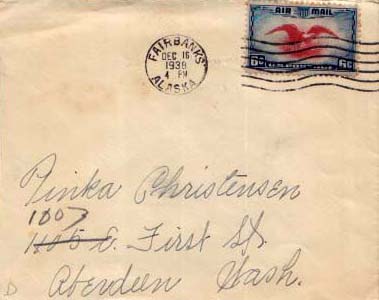 AIR MAIL
6¢ U.S. POSTAGE 6¢
FAIRBANKS
DEC 16
1938
4 PM
ALASKA
Pinka Christensen
1007
1105 E. First St.
Aberdeen Wash.
D